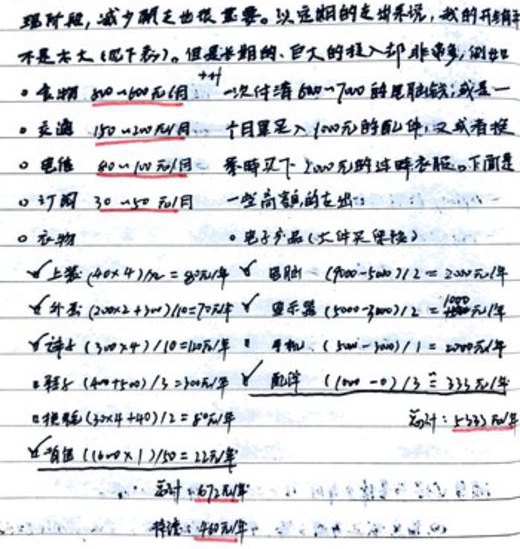 现阶段，减少额支也很重要。以短期的支出来说，我的开销并
不是太大（见下表）。但是长期的、巨大的投入却非常多，例如
。食物 500~600元/月 一次付清6000~7000的电脑钱；或是一
。交通 150~200元/月 个月累足入1000元的配件，又或者换
。电信 80~100元/月 季时买下2000元的过时衣服。下面是
。订阅 30~50元/月 一些高额的支出：
。衣物 。电子产品（大件及保险）
✓上装 (40×4)/2 = 80元/年 ✓电脑 (9000-5000)/2 = 2000元/年
✓外套 (200×2+300)/10=70元/年 ✓显示器 (5000-3000)/2 = 1000元/年
✓裤子 (300×4)/10=120元/年 手机 /1 = 2000元/年
鞋子 (400+500)/3=300元/年 ✓配件 (1000-0)/3 = 333元/年
(30×4+40)/2=80元/年 总计：5333元/年
✓ ×1)/50=22元/年
总计：672元/年
：460元/年